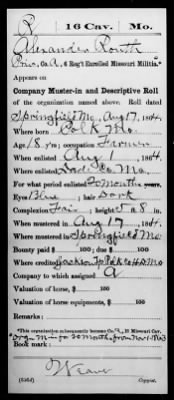 R | 16 Cav. | Mo.
Alexander Routh
Priv., Co. A, 6 Reg't Enrolled Missouri Militia.*
Appears on
Company Muster-in and Descriptive Roll
of the organization named above. Roll dated
Springfield Mo, Aug 17, 1864.
Where born Polk Mo.
Age 18 y'rs; occupation Farmer
When enlisted Aug 1, 1864.
Where enlisted Dade Co, Mo.
For what period enlisted 20 months years.
Eyes Blue; hair Dark
Complexion Fair; height 5 ft. 8 in.
When mustered in Aug 17, 1864.
Where mustered in Springfield Mo
Bounty paid $ 100; due $ 100
Where credited Jackson Tp Polk Co 4 D. Mo
Company to which assigned A
Valuation of horse, $ 100
Valuation of horse equipments, $ 100
Remarks:
*This organization subsequently became Co. A, 16 Missouri Cav.
Orgn M.in for 20 months from Nov 1-1863
Book mark:
Weaver
(356d) Copyist.